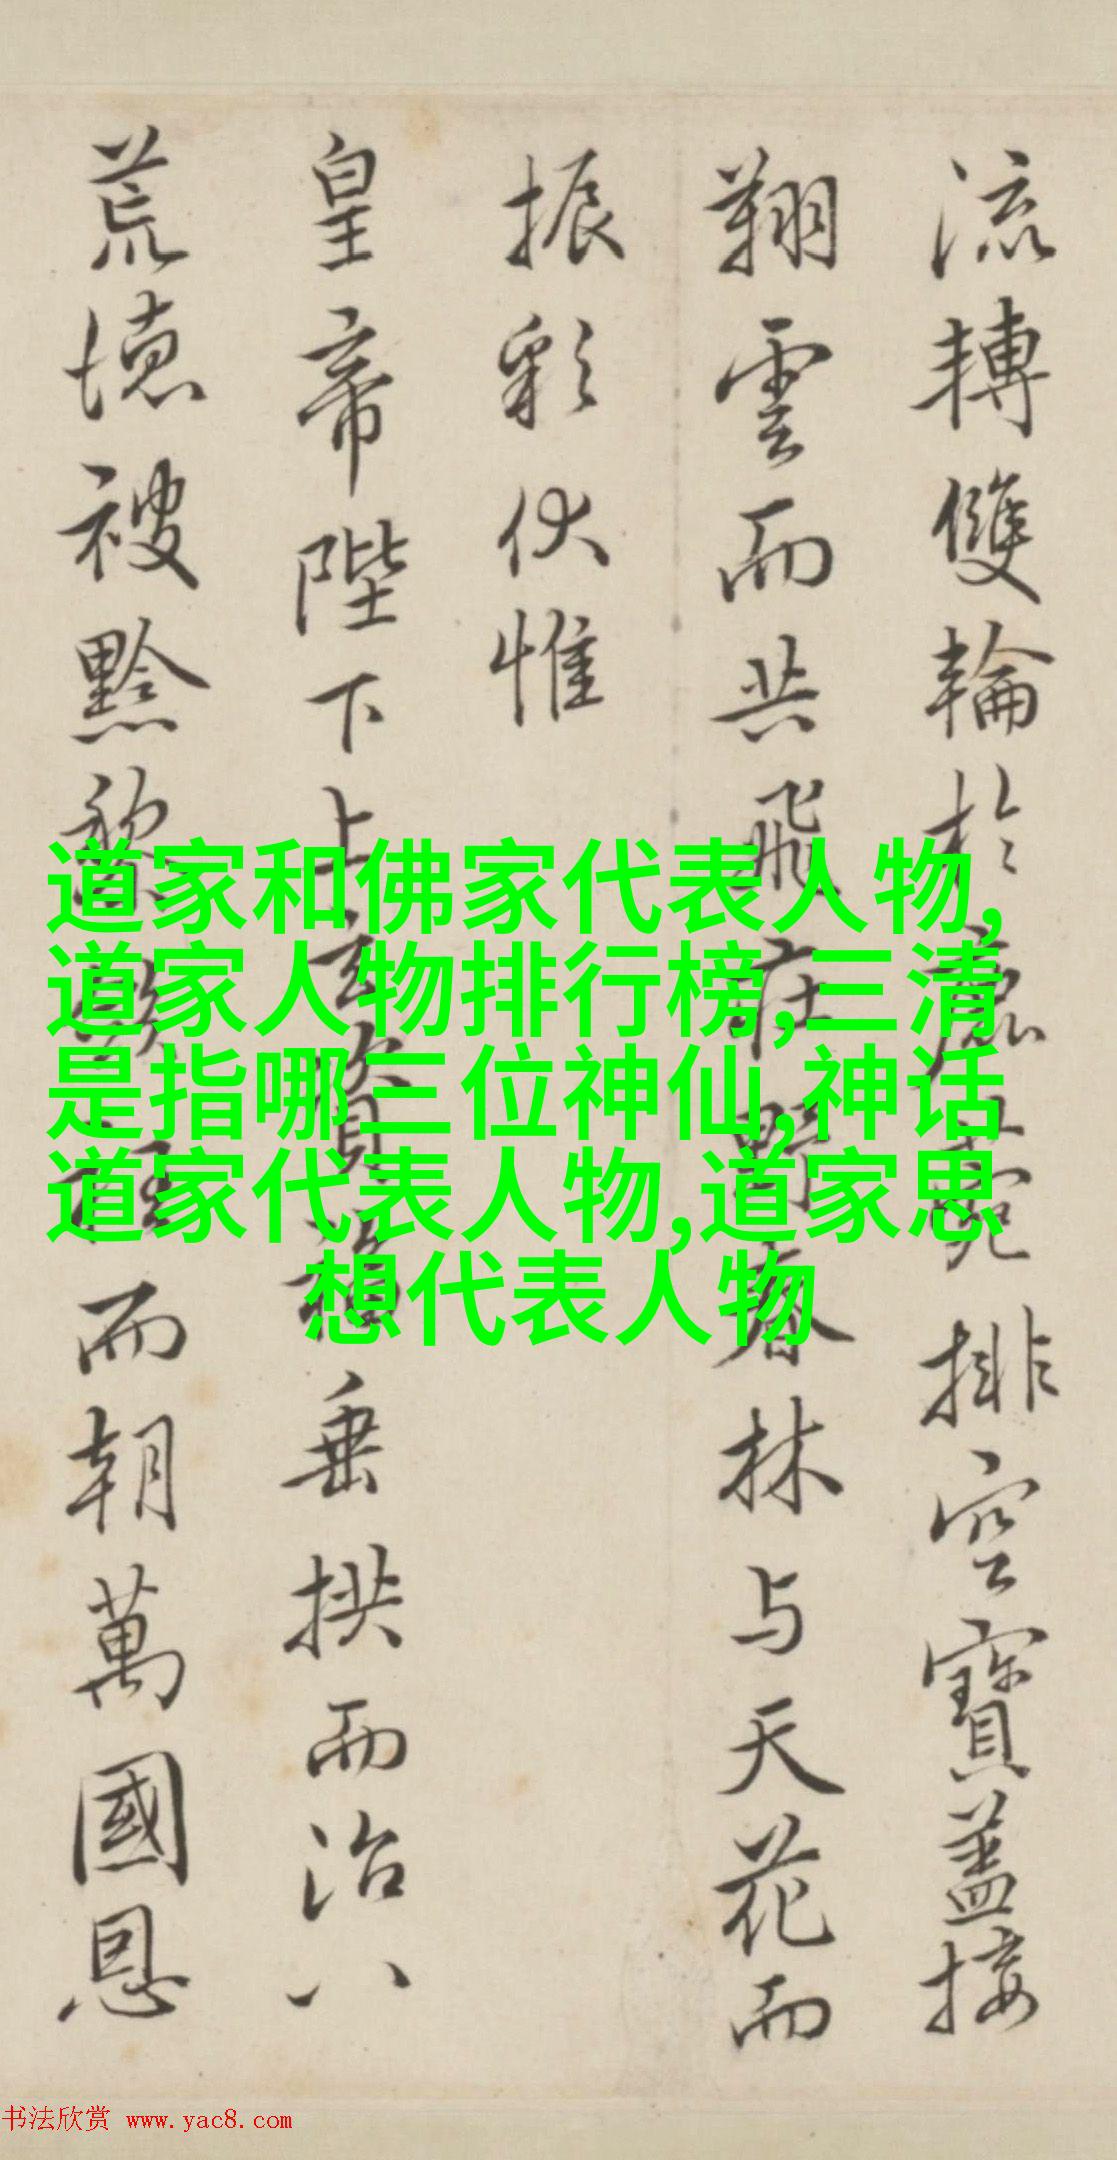 流轉雙輪於鹿菀排空寶蓋接
翔雲而共飛莊野春林与天花而
振彩伏惟
皇帝陛下上玄資福垂拱而治八
荒德被黔黎斂衽而朝萬國恩
道家和佛家代表人物,
道家人物排行榜,三清
是指哪三位神仙,神话
道家代表人物,道家思
想代表人物
书法欣赏 www.yac8.com